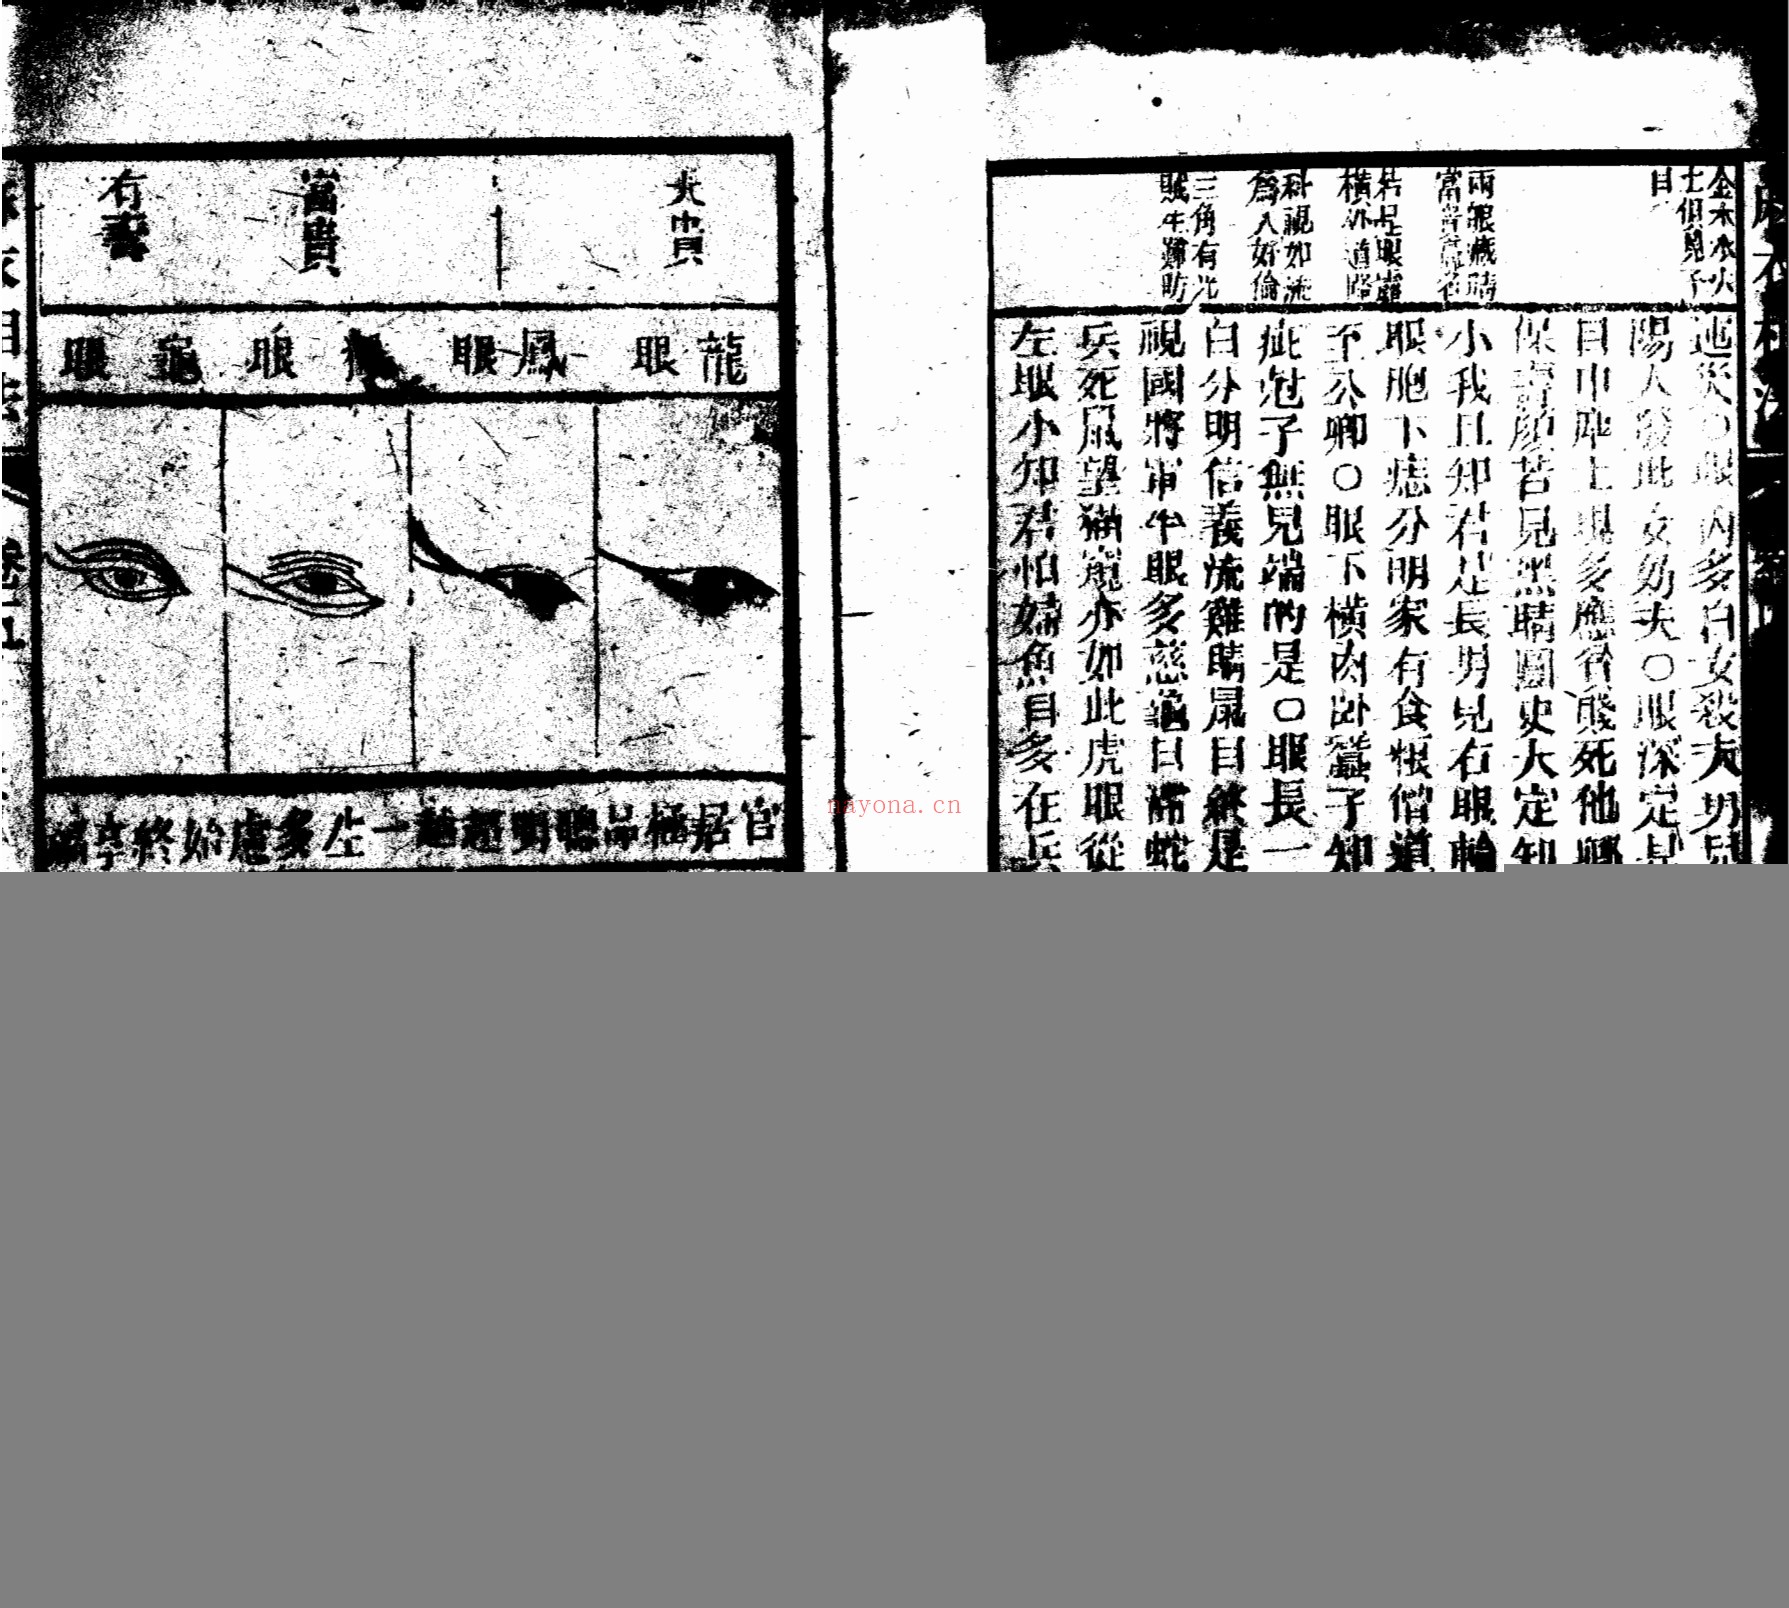 金木水火
土但見子
目
兩眼藏睛
當
若是眼露
橫外道路
斜視如流
為人好偷
三角有光
賊生難防
迍災○眼內多白女殺夫男兒
陽人發此女妨夫○眼深定是
目中陣上現多應客殘死他鄉
顏若見黑睛圓更大定知
小我且知君是長男兒右眼輪
眼胞下痣分明家有食粮僧道
至公卿○眼下橫肉臥蠶子知
疵尅子無兒端的是○眼長一
白分明信義流雞睛鼠目終是
視國將軍牛眼多慈龜目滯蛇
兵死鼠望猫窺亦如此虎眼從
左眼小知君怕婦魚目多在兵
大貴
富貴
有壽
龍眼
鳳眼
眼
龜眼
官居極品聰明超越一生多處始終亨福
nayona.cn